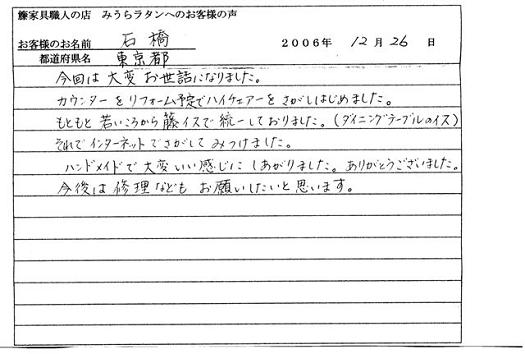 籐家具職人の店 みうらラタンへのお客様の声
お客様のお名前 石橋 2006年 12月 26日
都道府県名 東京都
今回は大変お世話になりました。
カウンターをリフォーム予定でハイチェアーをさがしはじめました。
もともと若いころから籐イスで統一しておりました。(ダイニングテーブルのイス)
それでインターネットでさがしてみつけました。
ハンドメイドで大変いい感じにしあがりました。ありがとうございました。
今後は修理などもお願いしたいと思います。